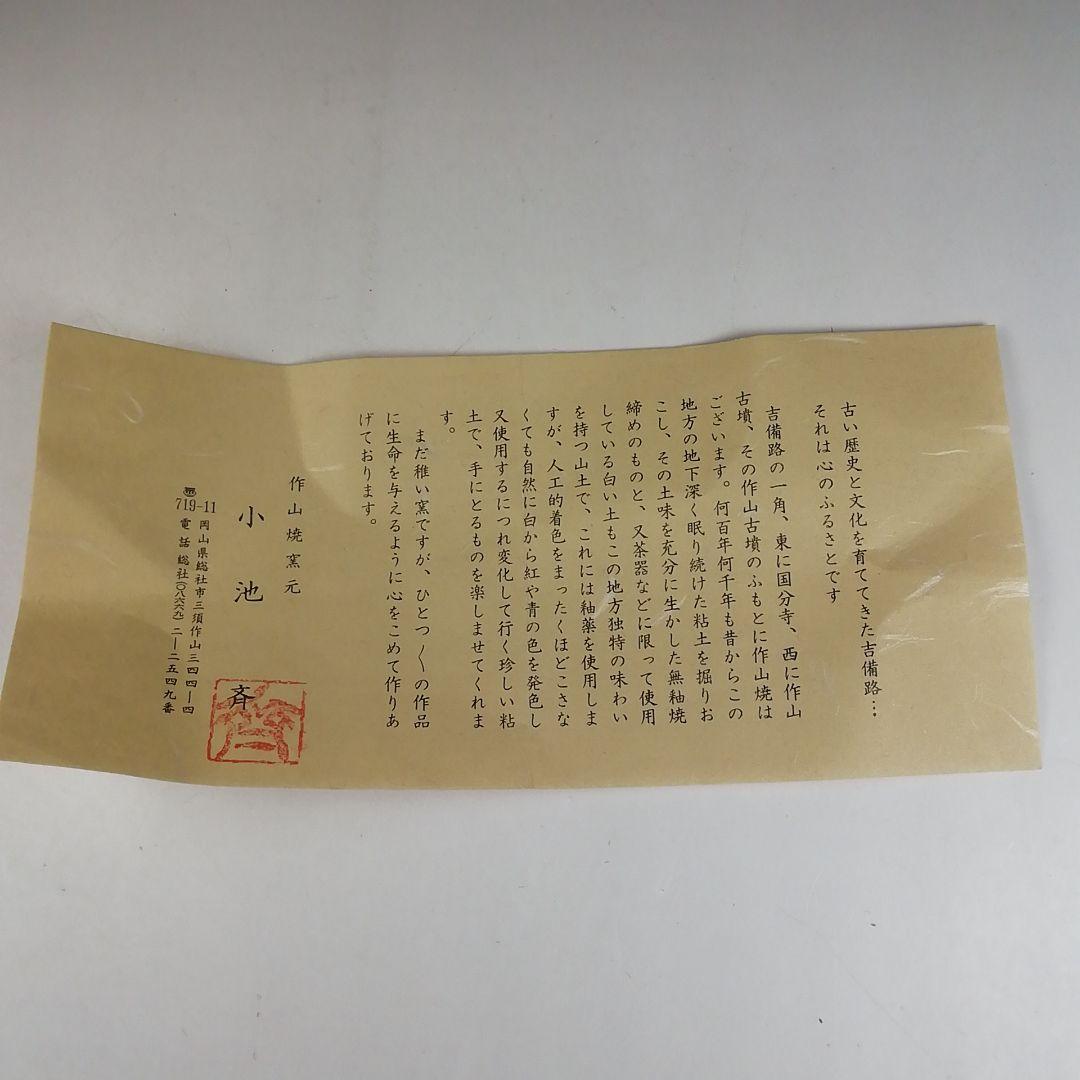 古い歴史と文化を育ててきた吉備路…
それは心のふるさとです
吉備路の一角、東に国分寺、西に作山
古墳、その作山古墳のふもとに作山焼は
ございます。何百年何千年も昔からこの
地方の地下深く眠り続けた粘土を掘りお
こし、その土味を充分に生かした無釉焼
締めのものと、又茶器などに限って使用
している白い土もこの地方独特の味わい
を持つ山土で、これには釉薬を使用しま
すが、人工的着色をまったくほどこさな
くても自然に白から紅や青の色を発色し
又使用するにつれ変化して行く珍しい粘
土で、手にとるものを楽しませてくれま
す。
まだ稚い窯ですが、ひとつ〱の作品
に生命を与えるように心をこめて作りあ
げております。
作山焼窯元
小池 斉
〒719-11 岡山県総社市三須作山三四四―四
電話 総社(〇八六六九)二―二五四九番